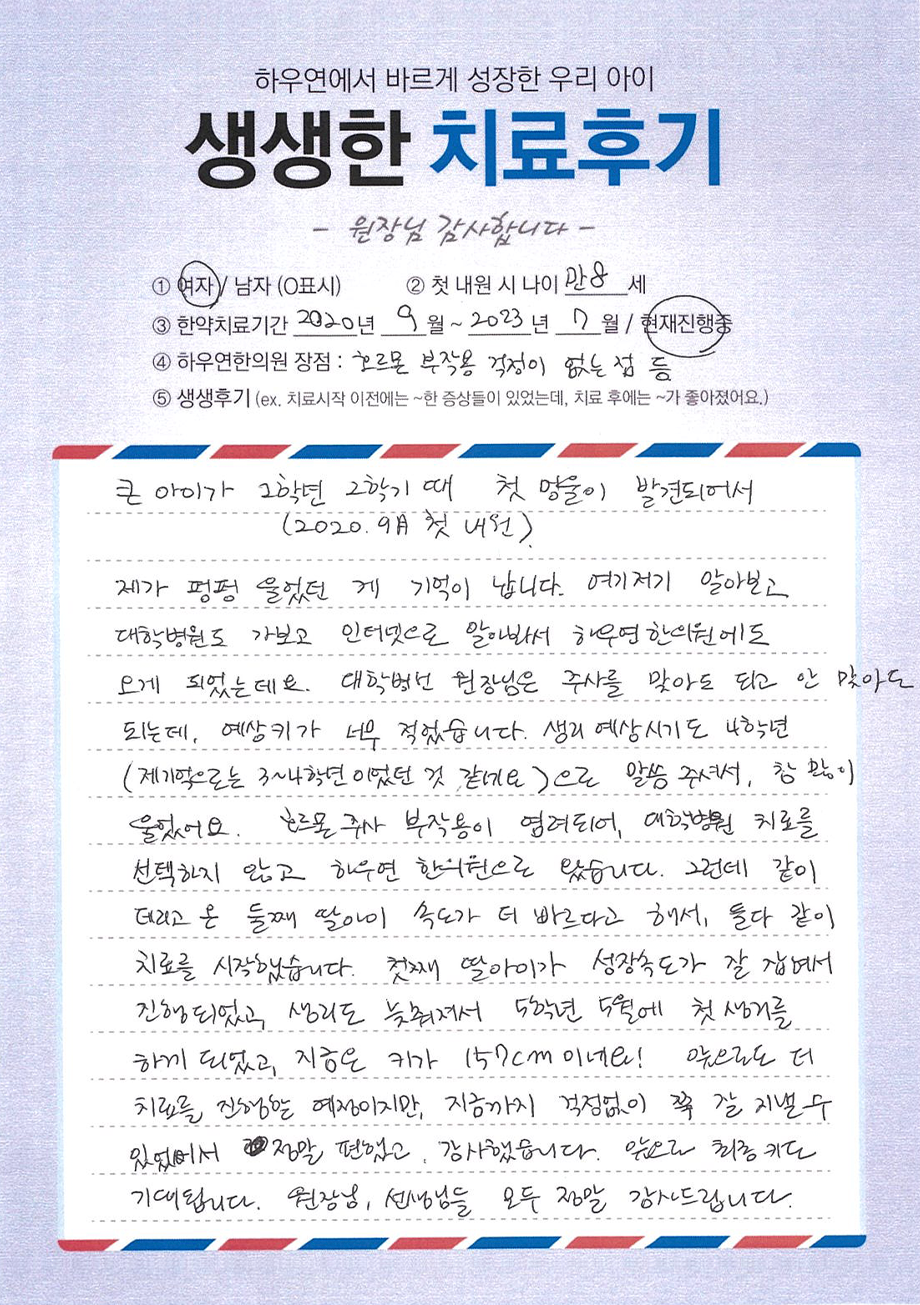 하우연에서 바르게 성장한 우리 아이
생생한 치료후기
- 원장님 감사합니다 -
① 여자 / 남자 (O표시) ② 첫 내원 시 나이 만 8 세
③ 한약치료기간 2020년 9월 ~ 2023년 7월 / 현재진행중
④ 하우연한의원 장점 : 호르몬 부작용 걱정이 없는 점 등
⑤ 생생후기 (ex. 치료시작 이전에는 ~한 증상들이 있었는데, 치료 후에는 ~가 좋아졌어요.)
큰 아이가 2학년 2학기 때 첫 멍울이 발견되어서
(2020. 9月 첫 내원).
제가 펑펑 울었던 게 기억이 납니다. 여기저기 알아보고
대학병원도 가보고 인터넷으로 알아봐서 하우연한의원에도
오게 되었는데요. 대학병원 원장님은 주사를 맞아도 되고 안 맞아도
되는데, 예상키가 너무 적었습니다. 생리 예상시기도 4학년
(제기억으로는 3~4학년이었던 것 같네요)으로 말씀 주셔서, 참 많이
울었어요. 호르몬 주사 부작용이 염려되어, 대학병원 치료를
선택하지 않고 하우연 한의원으로 왔습니다. 그런데 같이
데리고 온 둘째 딸아이 속도가 더 빠르다고 해서, 둘다 같이
치료를 시작했습니다. 첫째 딸아이가 성장속도가 잘 잡혀서
진행되었고, 생리도 늦춰져서 5학년 5월에 첫 생리를
하게 되었고, 지금은 키가 157cm이네요! 앞으로도 더
치료를 진행할 예정이지만, 지금까지 걱정없이 쭉 잘 지낼 수
있었어서 정말 편했고, 감사했습니다. 앞으로 최종 키도
기대됩니다. 원장님, 선생님들 모두 정말 감사드립니다.